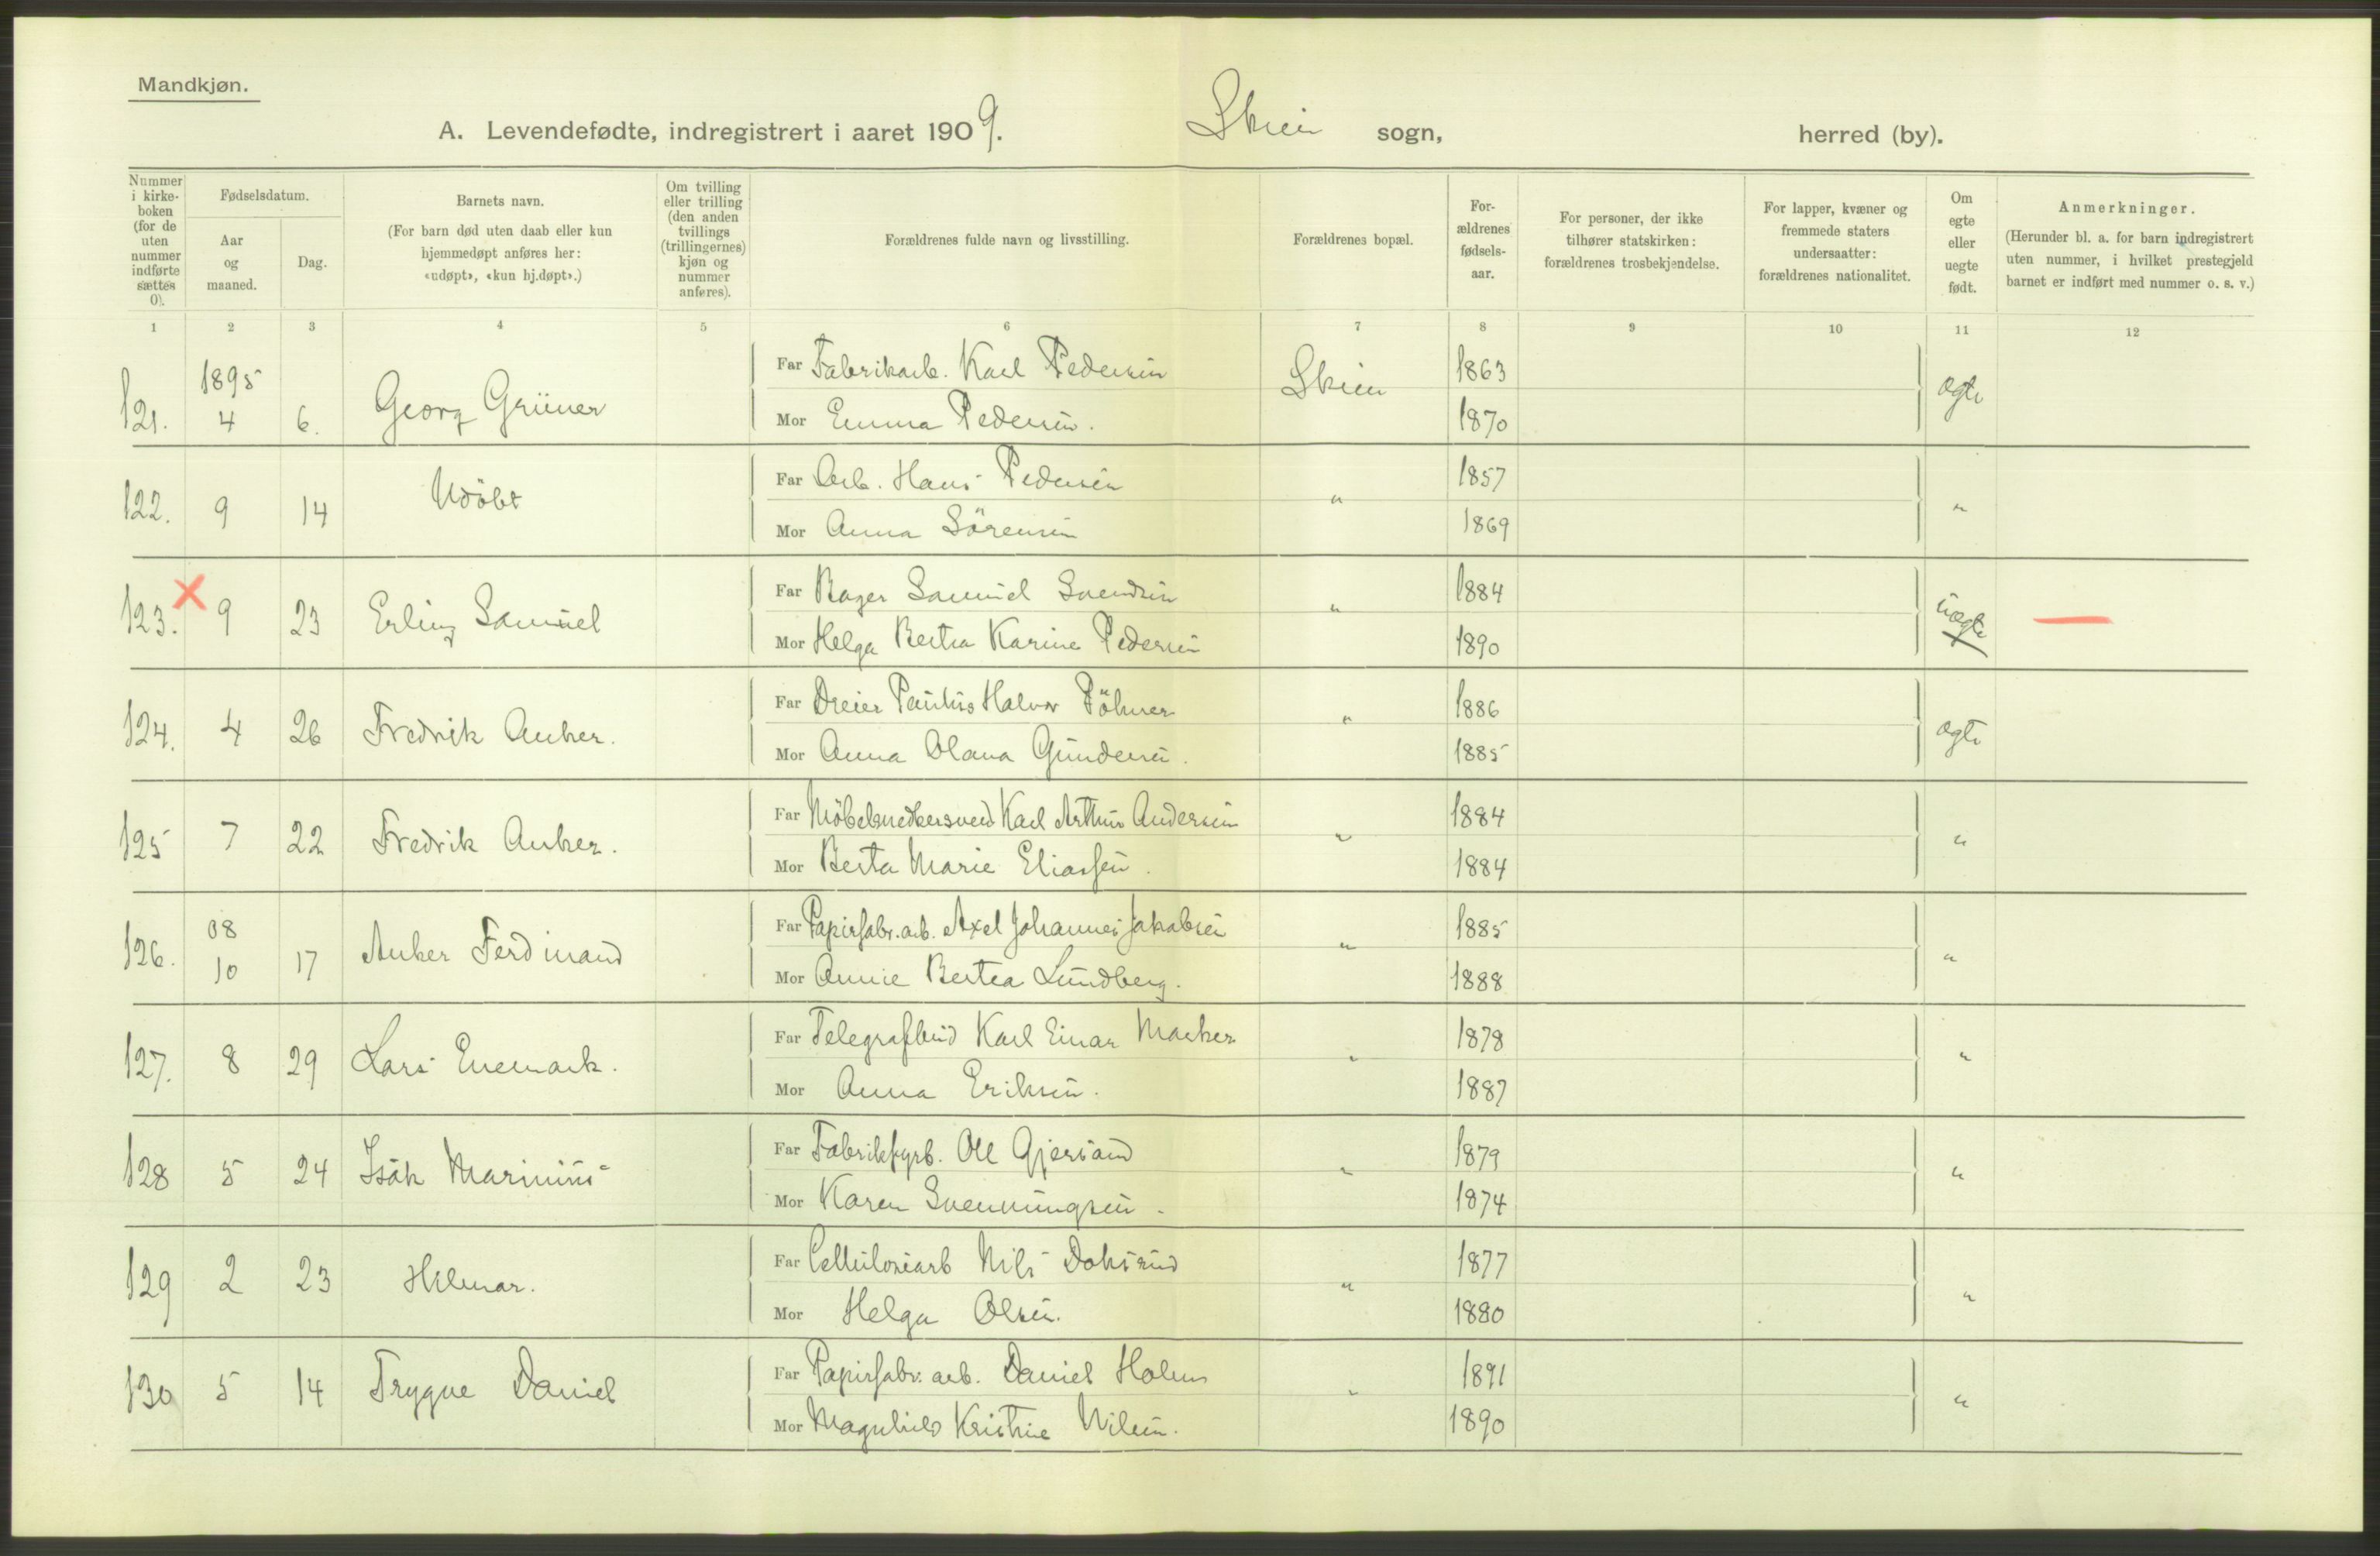 Mandkjøn.
A. Levendefødte, indregistrert i aaret 1909. Skien sogn, herred (by).
Nummer i kirke-boken (for de uten nummer indførte sættes 0).
Fødselsdatum.
Aar og maaned.
Dag.
Barnets navn.
(For barn død uten daab eller kun hjemmedøpt anføres her: «udøpt», «kun hj.døpt».)
Om tvilling eller trilling (den anden tvillings (trillingernes) kjøn og nummer anføres).
Forældrenes fulde navn og livsstilling.
Forældrenes bopæl.
For-ældrenes fødsels-aar.
For personer, der ikke tilhører statskirken: forældrenes trosbekjendelse.
For lapper, kvæner og fremmede staters undersaatter: forældrenes nationalitet.
Om egte eller uegte født.
Anmerkninger.
(Herunder bl. a. for barn indregistrert uten nummer, i hvilket prestegjeld barnet er indført med nummer o. s. v.)
1 2 3 4 5 6 7 8 9 10 11 12
121. 1895 4 6. Georg Grüner Far Fabrikarb. Karl Pedersen Skien 1863 ægte
Mor Emma Pedersen. 1870
122. 9 14 Udöbt Far Arb. Hans Pedersen " 1857 "
Mor Anna Sörensen 1869
123. 9 23 Erling Samuel Far Bager Samuel Svendsen " 1884 uægte
Mor Helga Bertea Karine Pedersen 1890
124. 4 26 Fredrik Anker. Far Dreier Paulus Halvor Pöhner " 1886 ægte
Mor Anna Olava Gundersen. 1885
125 7 22 Fredrik Anker. Far Möbelsnedkersvend Karl Arthur Andersen " 1884 "
Mor Berta Marie Eliassen. 1884
126. 08 10 17 Anker Ferdinand Far Papirfabr. arb. Axel Johannes Jakobsen " 1885 "
Mor Annie Bertea Lundberg. 1888
127. 8 29 Lars Enemark. Far Telegrafbud Karl Einar Marker " 1878 "
Mor Anna Eriksen. 1887
128 5 24 Isak Marinius Far Fabrikfyrb. Ole Gjersund " 1879 "
Mor Karen Svenningsen. 1874
129 2 23 Hilmar. Far Cellulosearb Nils Doksrud " 1877 "
Mor Helga Olsen. 1880
130 5 14 Trygve Daniel Far Papirfabr. arb. Daniel Holm " 1891 "
Mor Magnhild Kristine Nilsen. 1890